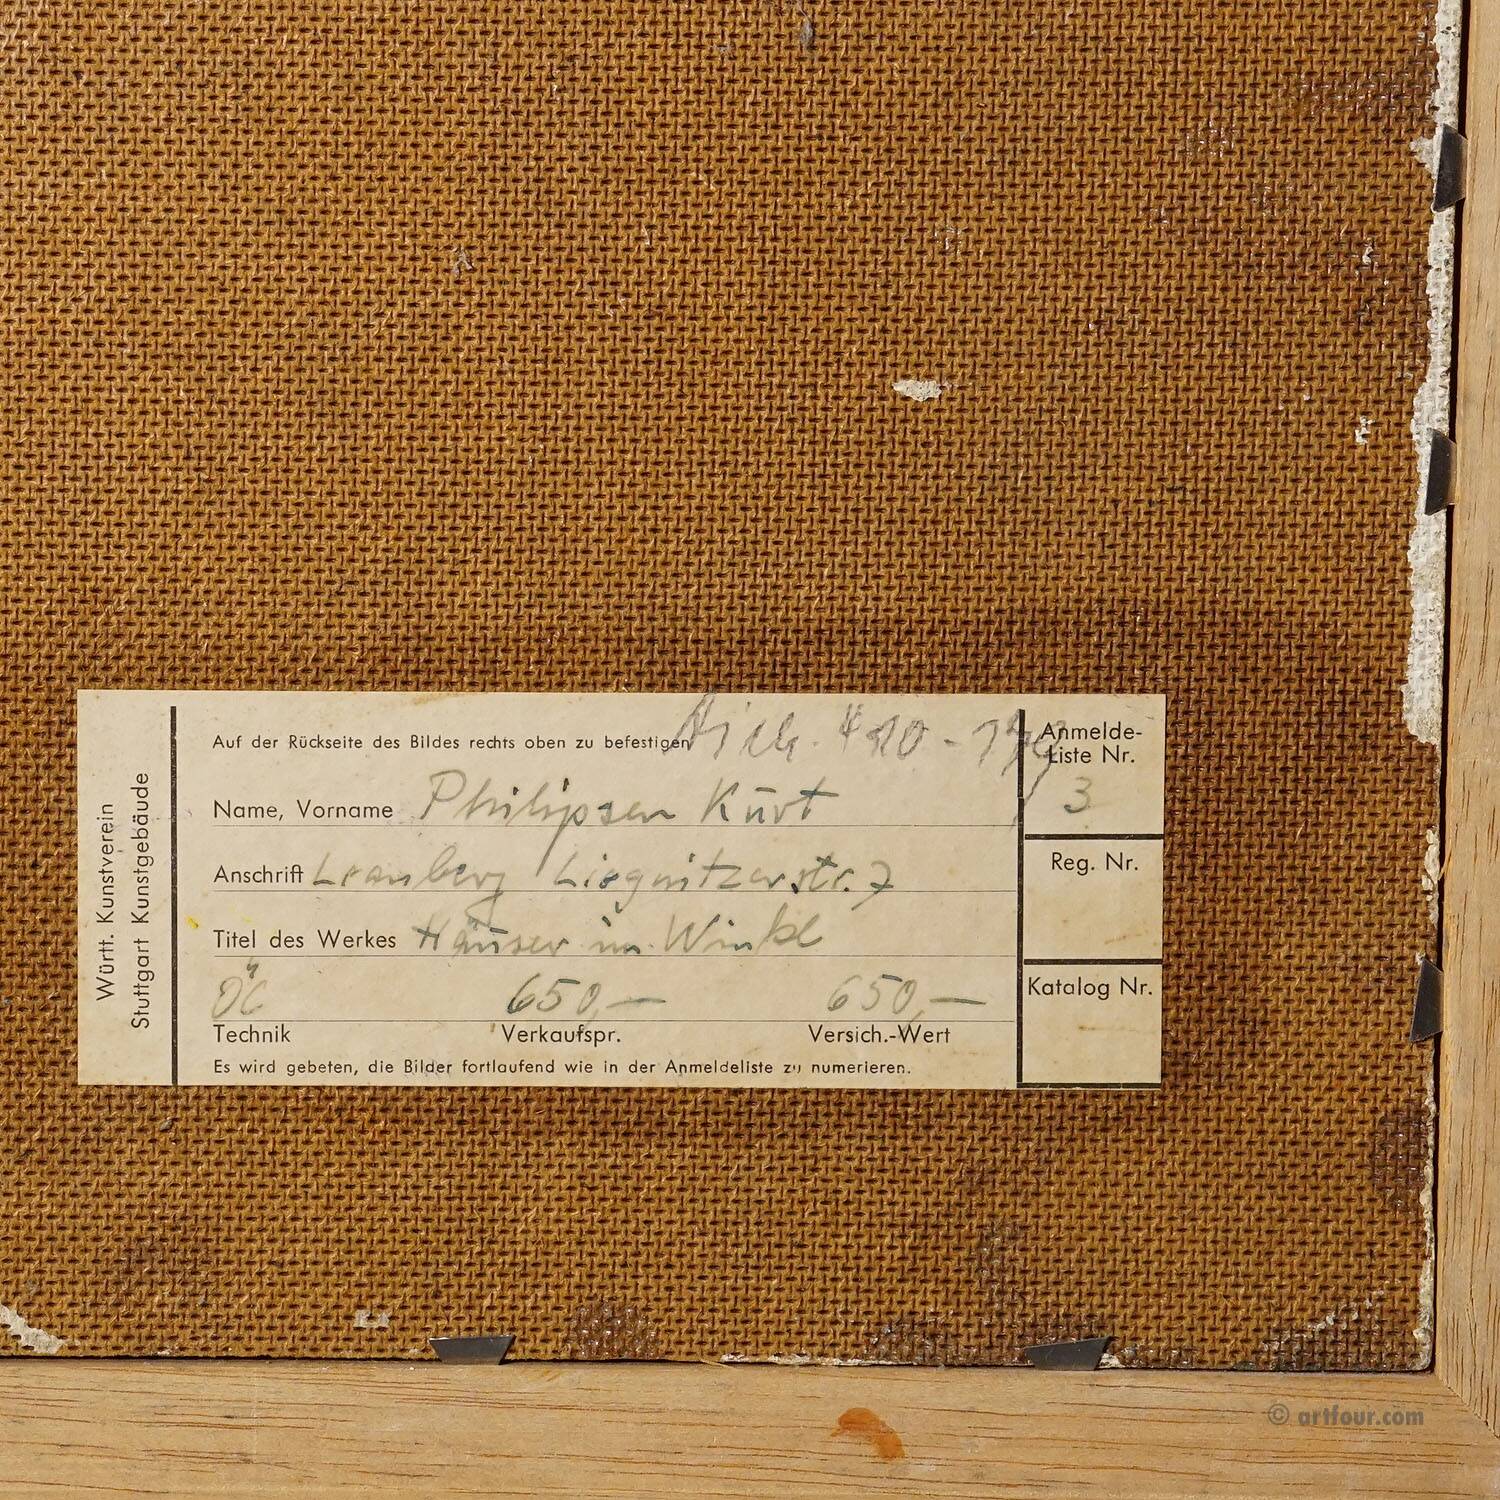 Württ. Kunstverein
Stuttgart Kunstgebäude
Auf der Rückseite des Bildes rechts oben zu befestigen
Name, Vorname Philipsen Kurt
Anschrift Leonberg Liegnitzerstr. 7
Titel des Werkes Häuser im Winkl
Öl 650,— 650,—
Technik Verkaufspr. Versich.-Wert
Es wird gebeten, die Bilder fortlaufend wie in der Anmeldeliste zu numerieren.
Anmelde-
Liste Nr.
3
Reg. Nr.
Katalog Nr.
© artfour.com